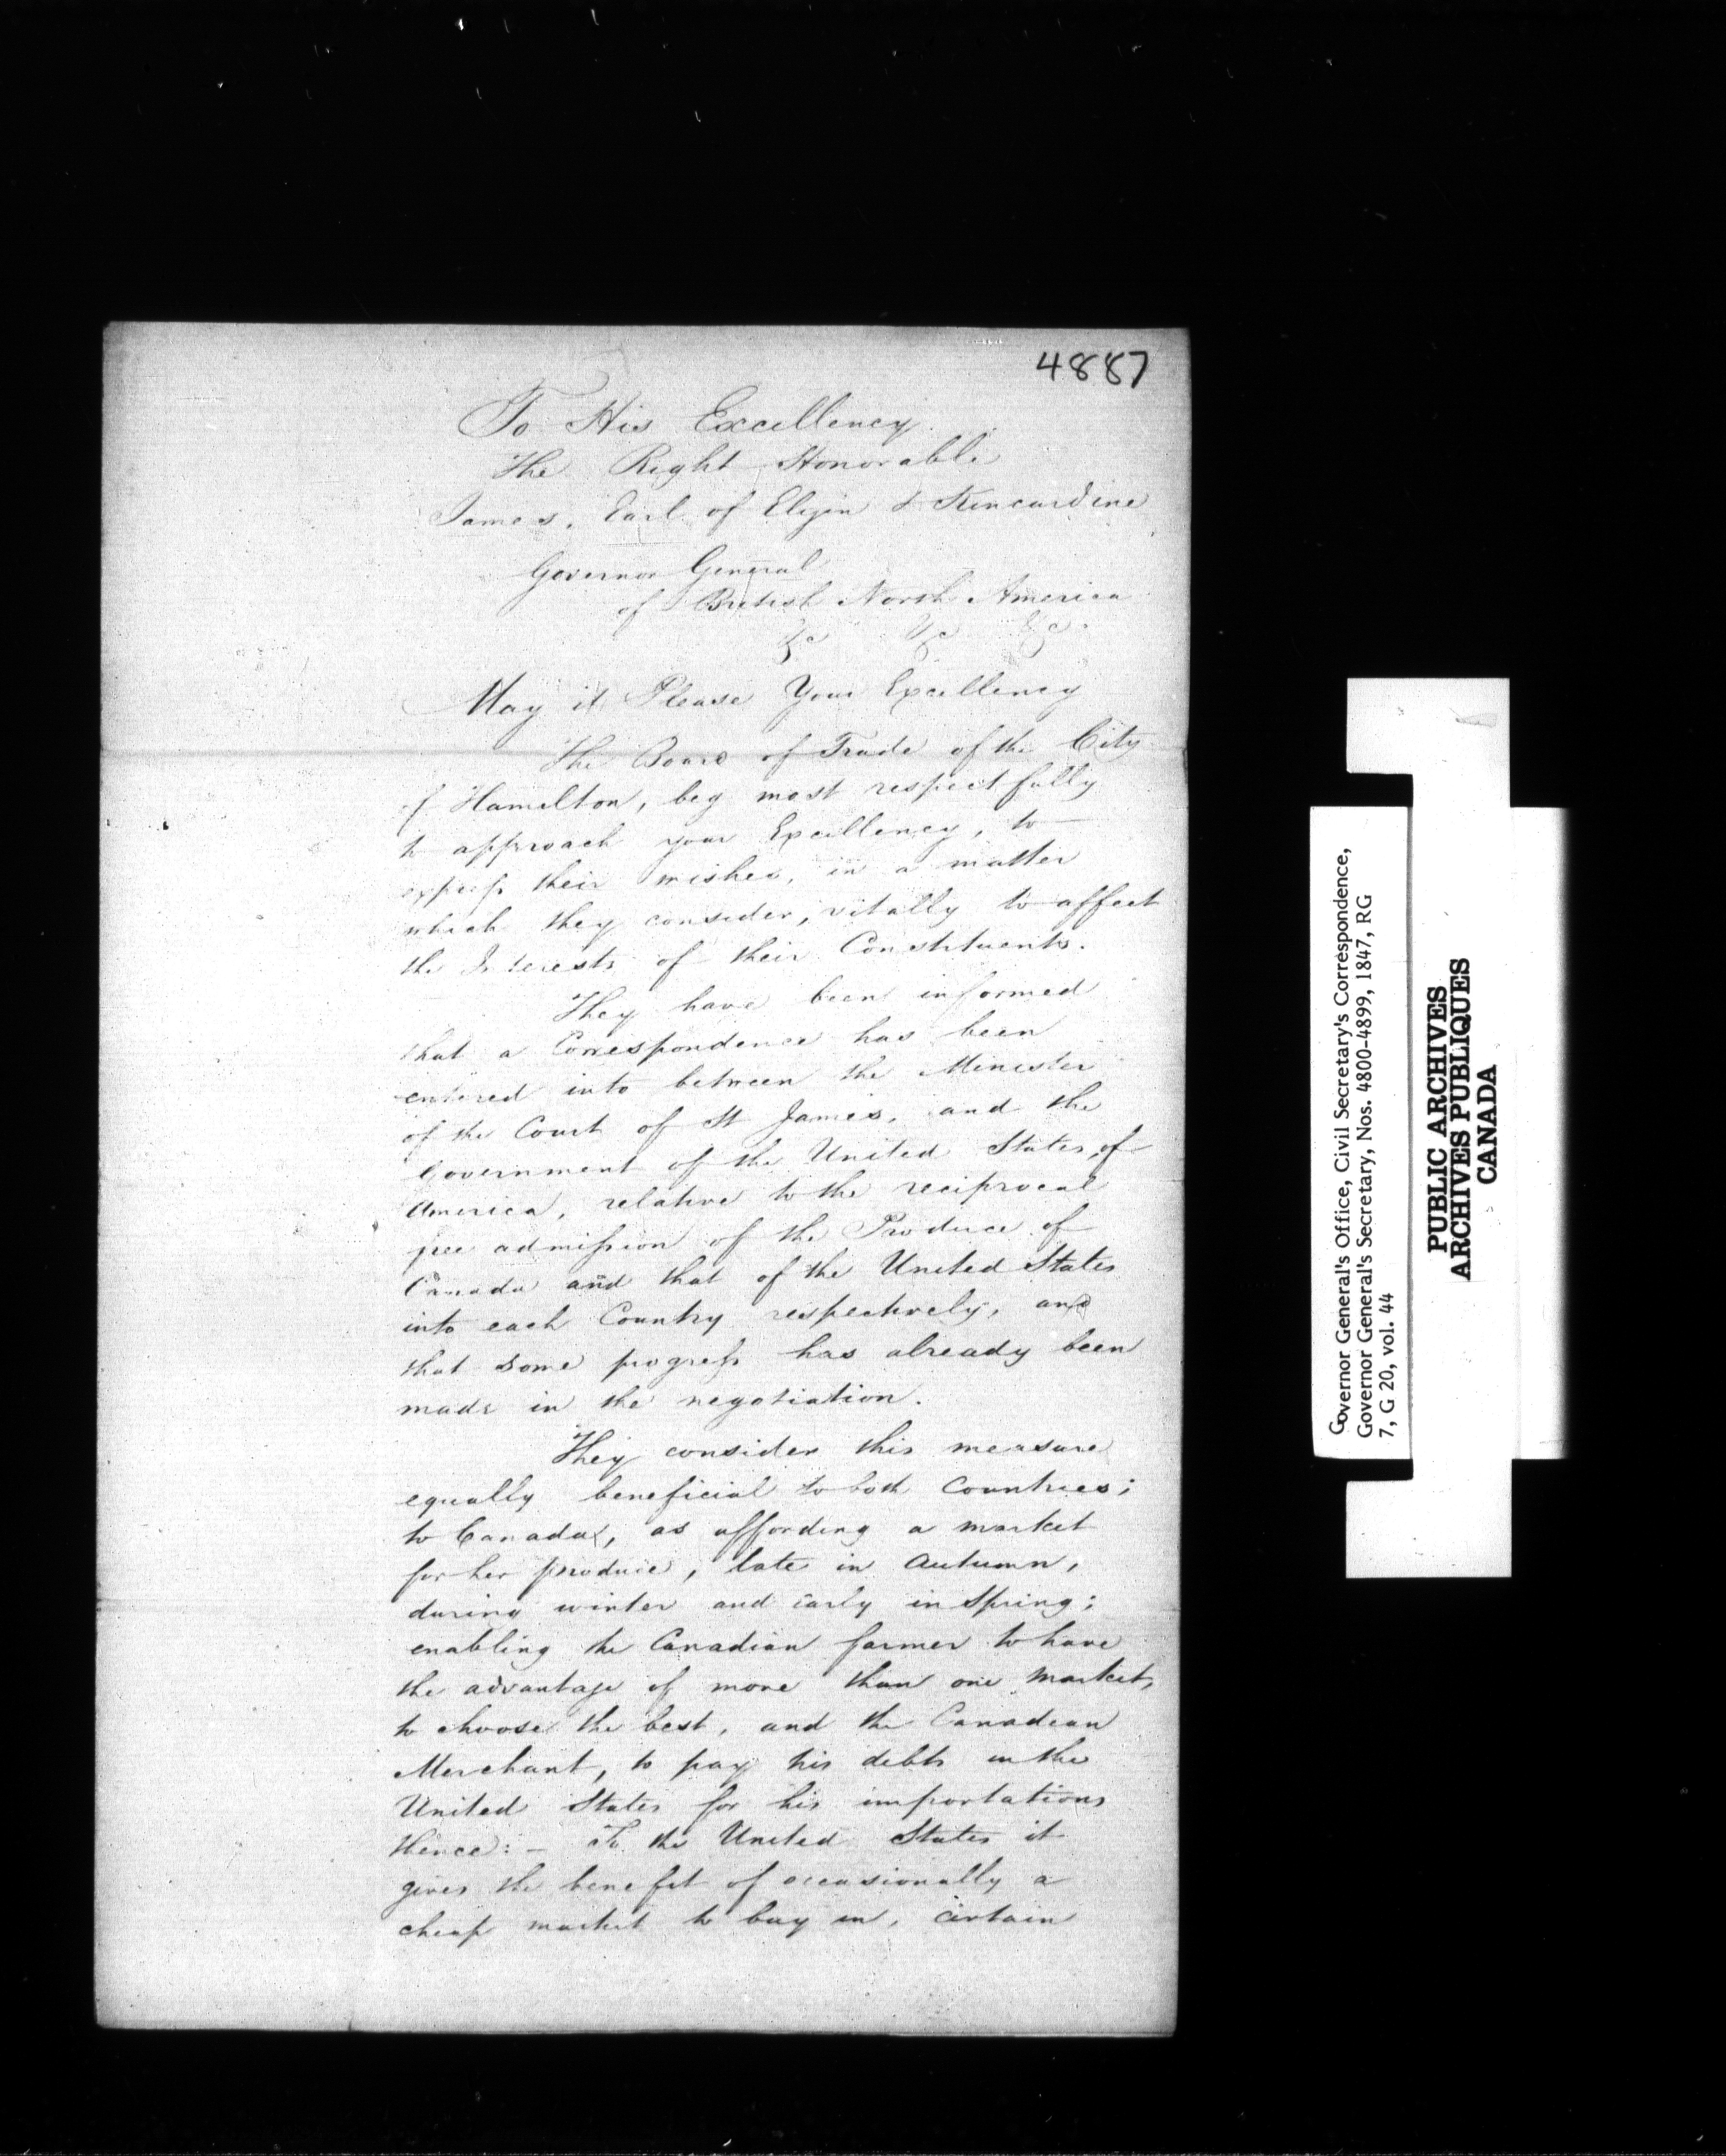 4887
To His Excellency
The Right Honorable
James, Earl of Elgin & Kincardine
Governor General
of British North America
&c &c &c
May it Please Your Excellency
The Board of Trade of the City
of Hamilton, beg most respectfully
to approach your Excellency, to
express their wishes, in a matter
which they consider, vitally to affect
the Interests of their Constituents.
They have been informed
that a Correspondence has been
entered into between the Minister
of the Court of St James, and the
Government of the United States, of
America, relative to the reciprocal
free admission of the Produce of
Canada and that of the United States
into each Country respectively, and
that some progress has already been
made in the negotiation.
They consider this measure
equally beneficial to both Countries;
to Canada, as affording a market
for her produce, late in Autumn,
during winter and early in Spring;
enabling the Canadian farmer to have
the advantage of more than one market,
to choose the best, and the Canadian
Merchant, to pay his debts in the
United States for his importations
thence: – To the United States it
gives the benefit of occasionally a
cheap market to buy in, certain
Governor General's Office, Civil Secretary's Correspondence,
Governor General's Secretary, Nos. 4800-4899, 1847, RG
7, G 20, vol. 44
PUBLIC ARCHIVES
ARCHIVES PUBLIQUES
CANADA